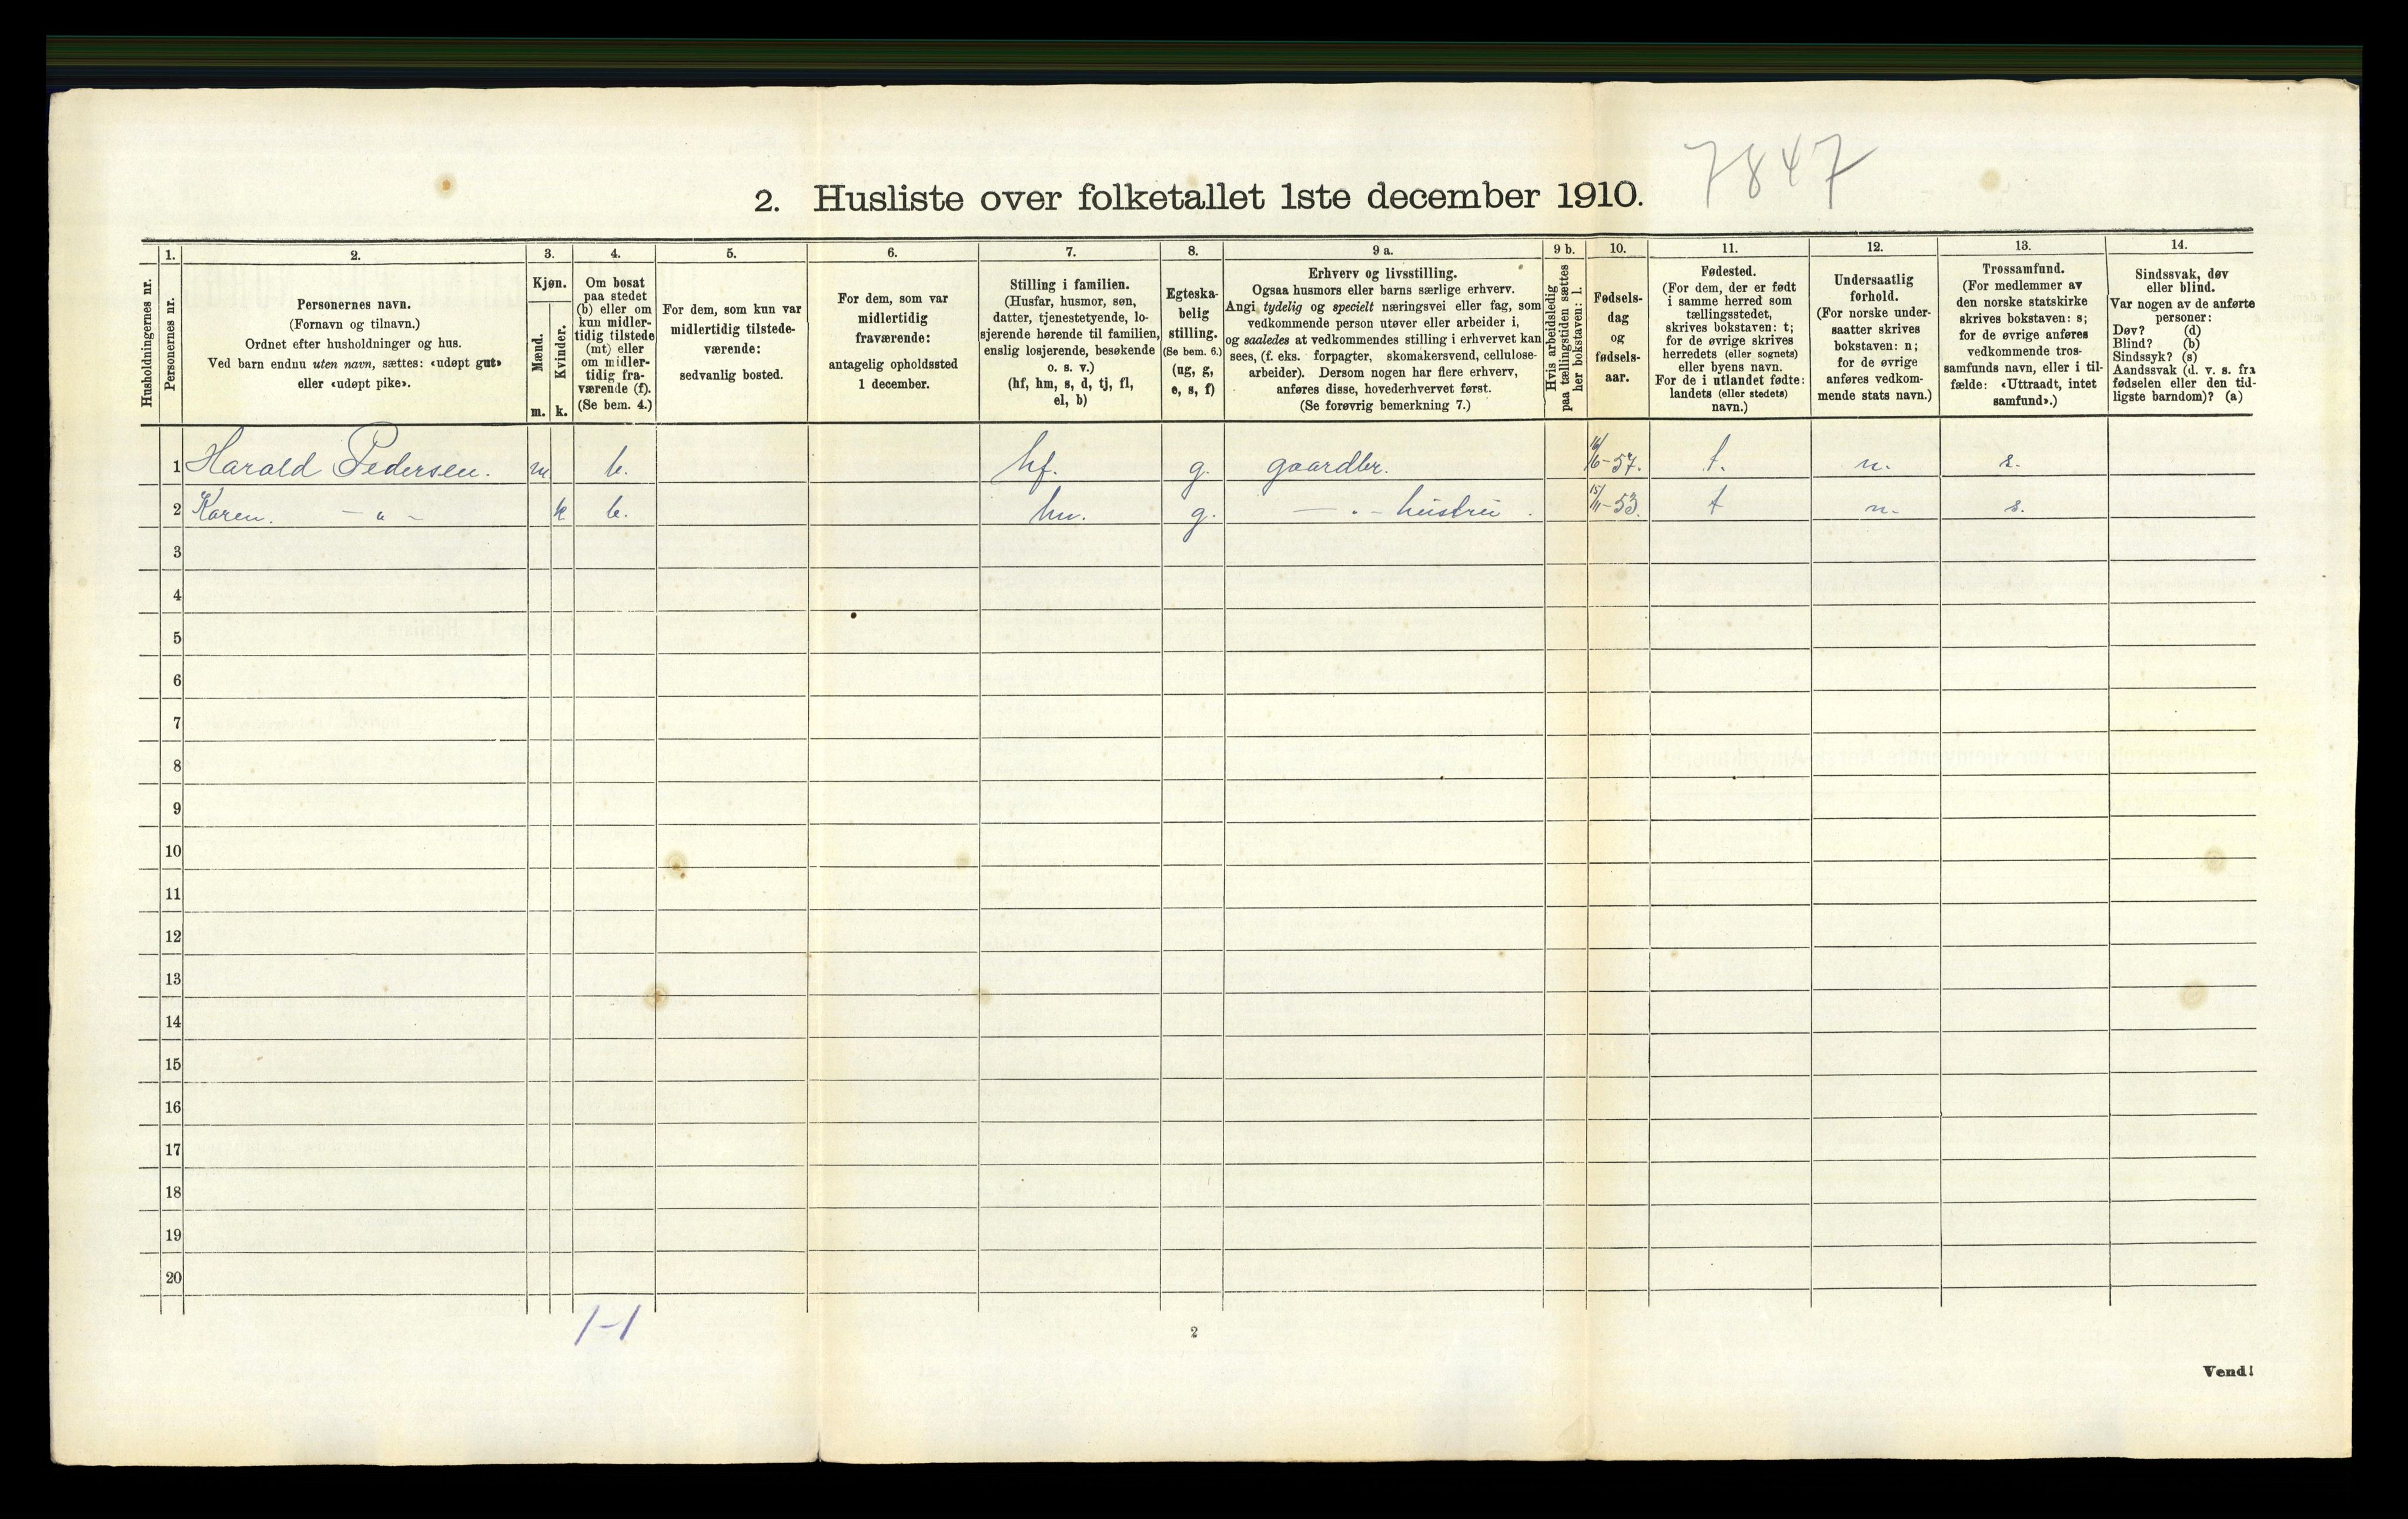 7847
2. Husliste over folketallet 1ste december 1910.
Husholdningernes nr.
1.
Personernes nr.
2.
Personernes navn.
(Fornavn og tilnavn.)
Ordnet efter husholdninger og hus.
Ved barn endnu uten navn, sættes: «udøpt gut»
eller «udøpt pike».
3.
Kjøn.
Mænd.
m.
Kvinder.
k.
4.
Om bosat
paa stedet
(b) eller om
kun midler-
tidig tilstede
(mt) eller
om midler-
tidig fra-
værende (f).
(Se bem. 4.)
5.
For dem, som kun var
midlertidig tilstede-
værende:
sedvanlig bosted.
6.
For dem, som var
midlertidig
fraværende:
antagelig opholdssted
1 december.
7.
Stilling i familien.
(Husfar, husmor, søn,
datter, tjenestetyende, lo-
sjerende hørende til familien,
enslig losjerende, besøkende
o. s. v.)
(hf, hm, s, d, tj, fl,
el, b)
8.
Egteska-
belig
stilling.
(Se bem. 6.)
(ug, g,
e, s, f)
9 a.
Erhverv og livsstilling.
Ogsaa husmors eller barns særlige erhverv.
Angi tydelig og specielt næringsvei eller fag, som
vedkommende person utøver eller arbeider i,
og saaledes at vedkommendes stilling i erhvervet kan
sees, (f. eks. forpagter, skomakersvend, cellulose-
arbeider). Dersom nogen har flere erhverv,
anføres disse, hovederhvervet først.
(Se forøvrig bemerkning 7.)
9 b.
Hvis arbeidsledig
paa tællingstiden sættes
her bokstaven: l.
10.
Fødsels-
dag
og
fødsels-
aar.
11.
Fødested.
(For dem, der er født
i samme herred som
tællingsstedet,
skrives bokstaven: t;
for de øvrige skrives
herredets (eller sognets)
eller byens navn.
For de i utlandet fødte:
landets (eller stedets)
navn.)
12.
Undersaatlig
forhold.
(For norske under-
saatter skrives
bokstaven: n;
for de øvrige
anføres vedkom-
mende stats navn.)
13.
Trossamfund.
(For medlemmer av
den norske statskirke
skrives bokstaven: s;
for de øvrige anføres
vedkommende tros-
samfunds navn, eller i til-
fælde: «Uttraadt, intet
samfund».)
14.
Sindssvak, døv
eller blind.
Var nogen av de anførte
personer:
Døv? (d)
Blind? (b)
Sindssyk? (s)
Aandssvak (d. v. s. fra
fødselen eller den tid-
ligste barndom)? (a)
1 Harald Pedersen. m. b. hf. g. gaardbr. 16/6-57. t. n. s.
2 Karen. — " — k b. hm. g. — " — hustru. 15/11-53. t n. s.
3
4
5
6
7
8
9
10
11
12
13
14
15
16
17
18
19
20
1-1
2
Vend!